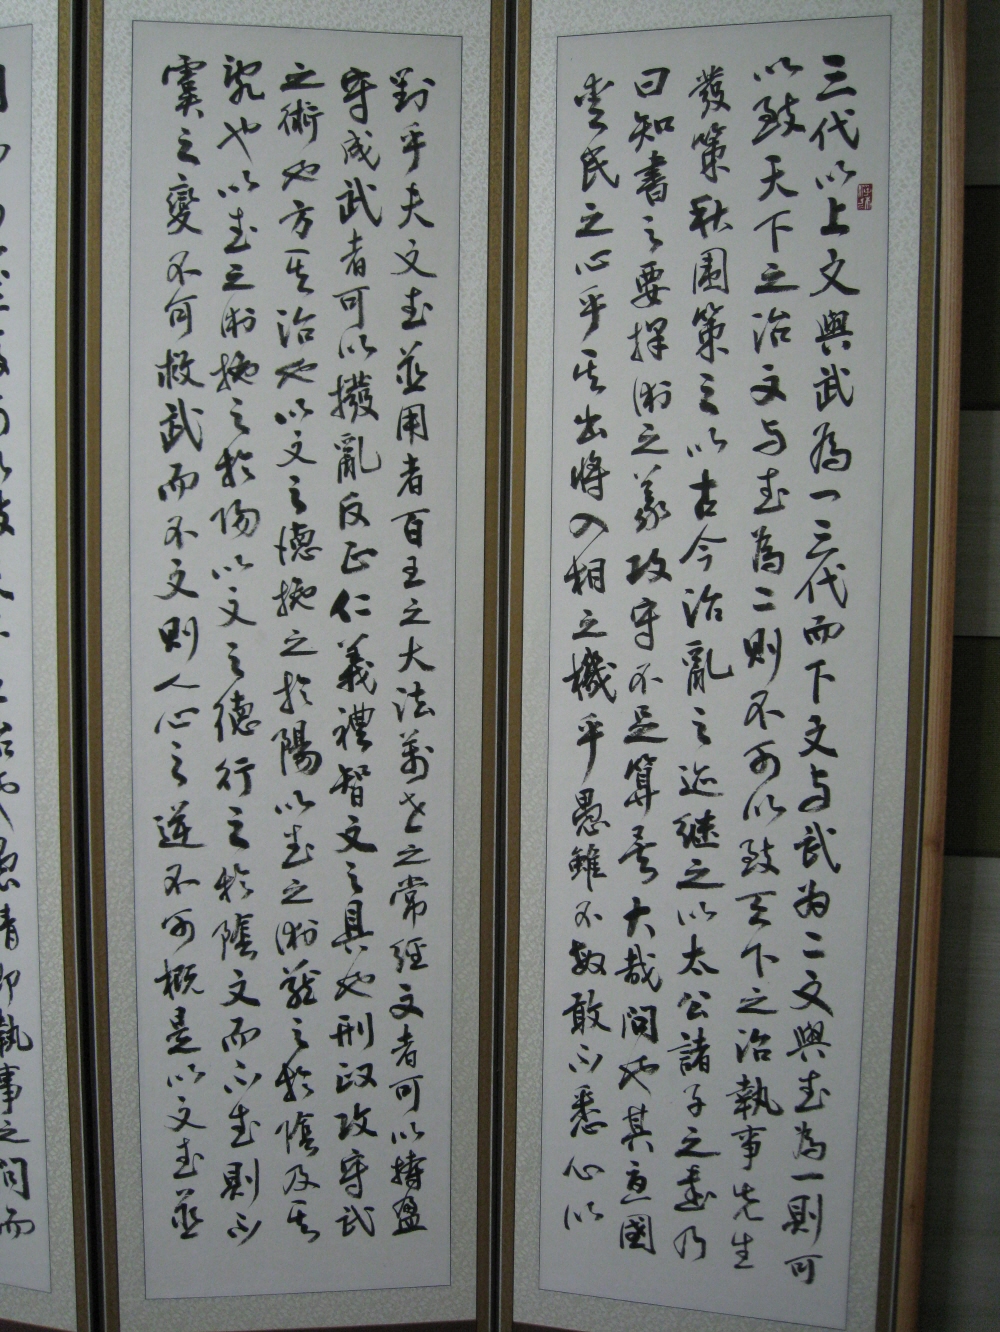 三代以上文與武為一三代而下文与武为二文與武為一則可
以致天下之治文与武為二則不可以致天下之治執事先生
發策秋圍策之以古今治亂之迹繼之以太公諸子之書乃
曰知書之要擇術之義攻守不足算矣大哉問也其憂國
愛民之心乎其出將入相之機乎愚雖不敏敢不悉心以
對乎夫文武並用者百王之大法萬世之常經文者可以持盈
守成武者可以撥亂反正仁義禮智文之具也刑政攻守武
之術也方其治也以文之德施之於陽以武之術藏之於陰及其
亂也以武之術施之於陽以文之德行之於陰文而不武則不
虞之變不可救武而不文則人心之逆不可概是以文武並
執事之問而